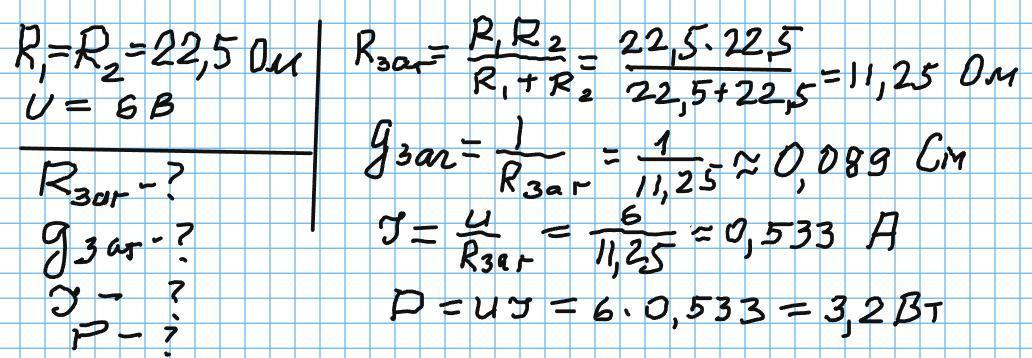 R₁=R₂=22,5 Ом
U = 6 В
Rзаг-?
gзаг-?
I - ?
P - ?
Rзаг = R₁R₂ / R₁+R₂ = 22,5·22,5 / 22,5+22,5 = 11,25 Ом
gзаг = 1 / Rзаг = 1 / 11,25 ≈ 0,089 См
I = U / Rзаг = 6 / 11,25 ≈ 0,533 А
P = UI = 6·0,533 = 3,2 Вт